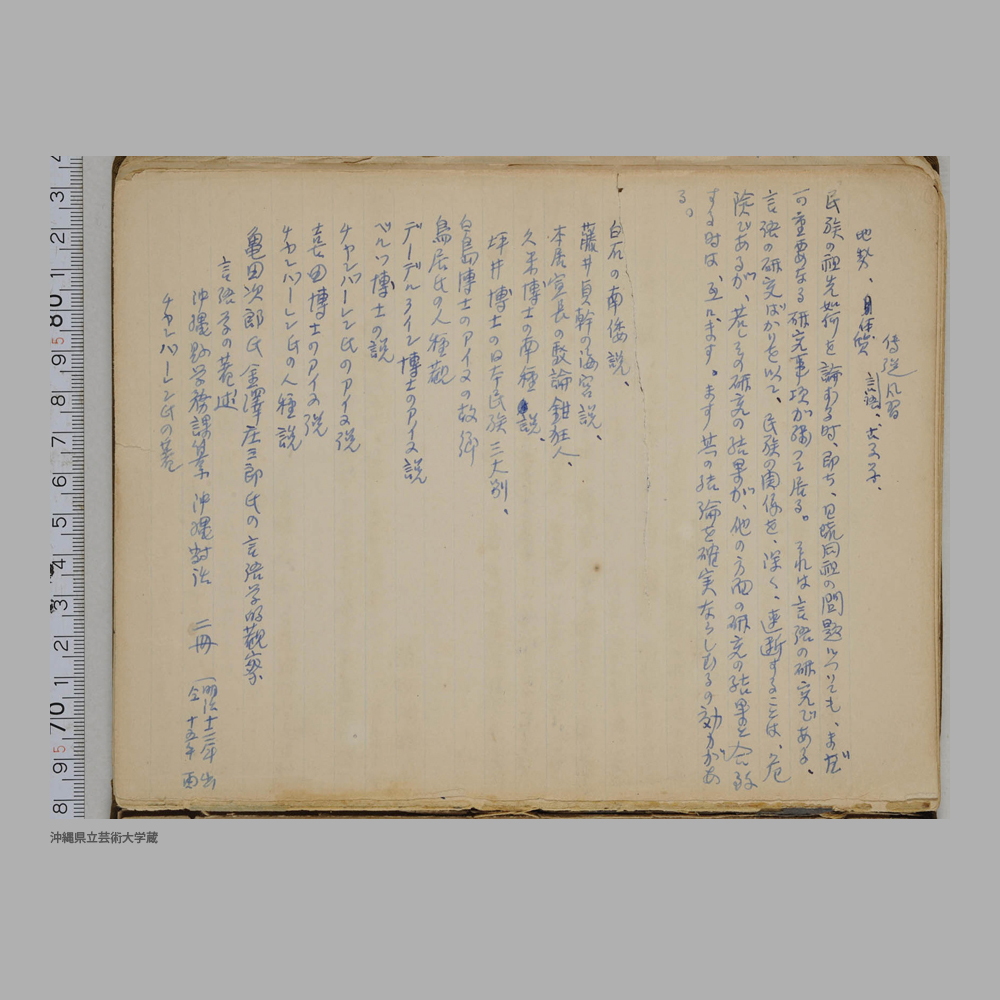 伝説、風習
地勢、
言語、文学、
民族の祖先如何を論ずる時、即ち、日琉同祖の問題についても、まだ
一つ重要なる研究事項が残つて居る。それは言語の研究である、
言語の研究ばかりを以て、民族の関係を、深く、速断することは、危
険であるが、若しその研究の結果が、他の方面の研究の結果と合致
する時は、互に、ます、ます其の結論を確実ならしむるの効力があ
る。
白石の南倭説、
藤井貞幹の海宮説、
本居宣長の駁論鉗狂人、
久米博士の南種説、
坪井博士の日本民族三大別、
白鳥博士のアイヌの故郷
鳥居氏の人種観
デーデルライン博士のアイヌ説
ベルツ博士の説
チャンバーレン氏のアイヌ説
喜田博士のアイヌ説
チャンバーレン氏の人種説
亀田次郎氏 金澤庄三郎氏の言語学的観察
言語学の著述
沖縄県学務課集 沖縄対話 二冊 (明治十三年出
仝 十五年 再
チャンバーレン氏の著
沖縄県立芸術大学蔵